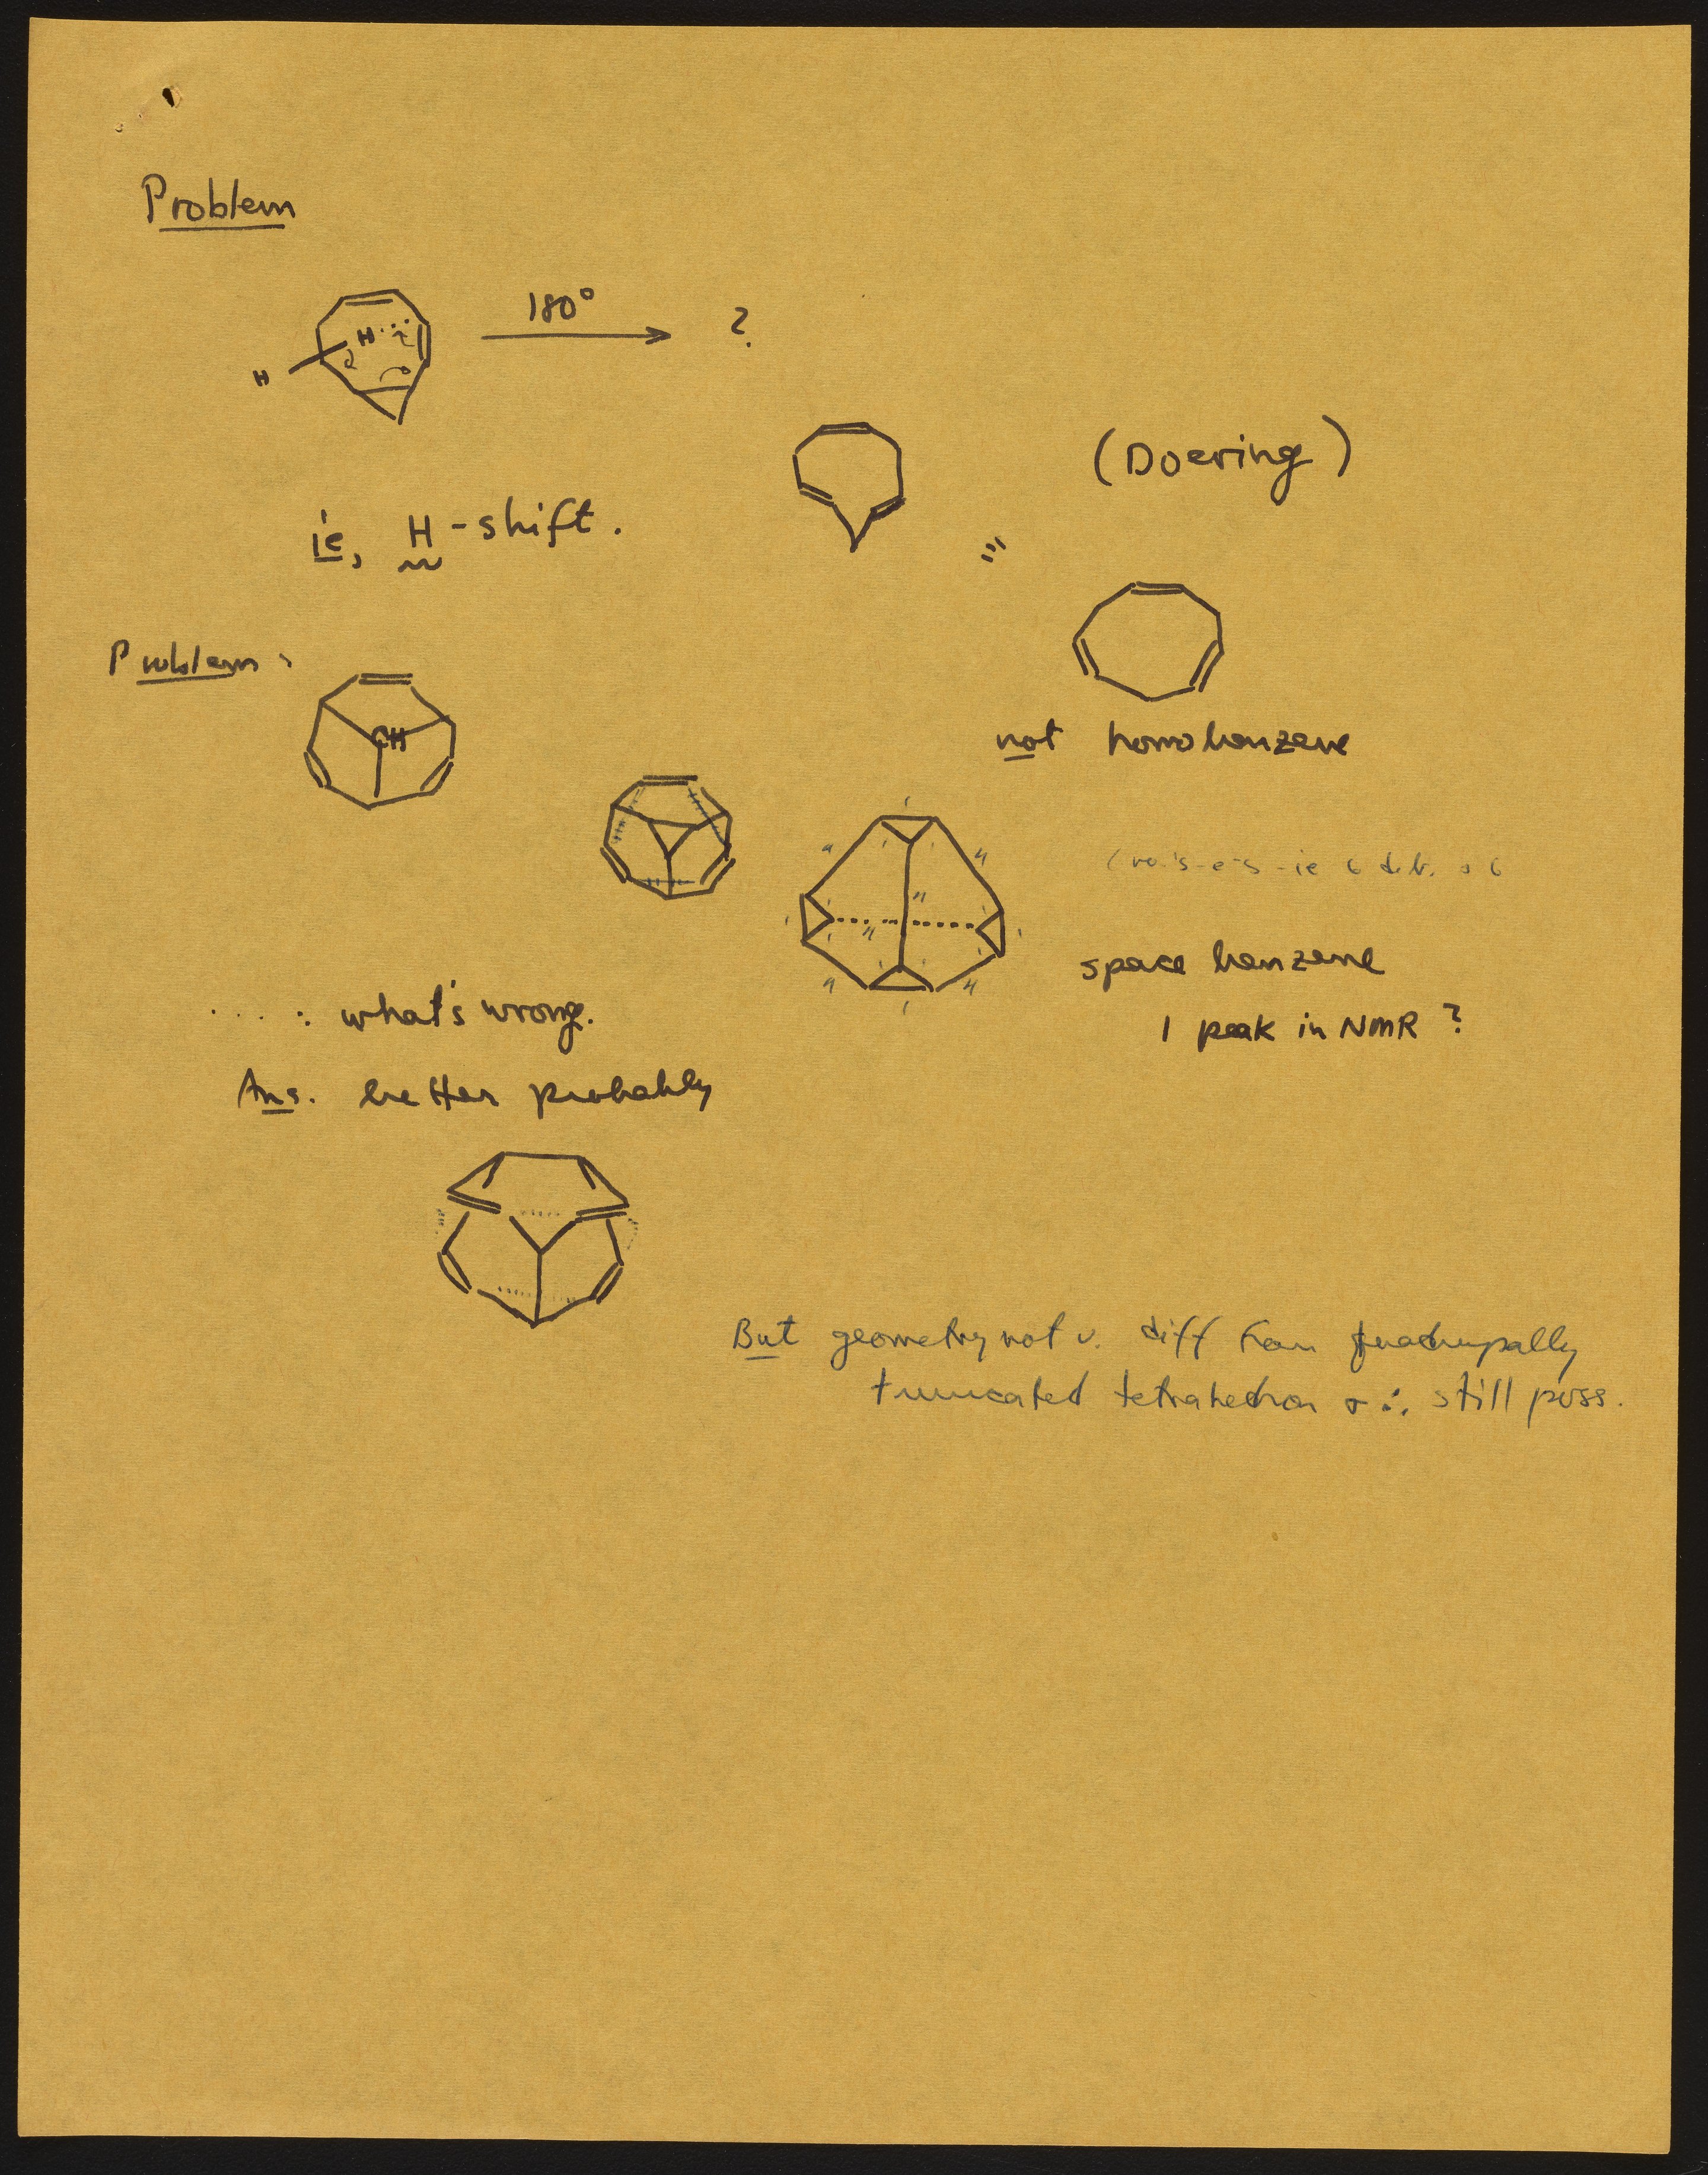 Problem
H
H
180°
?
(Doering)
ie, H-shift.
Problem:
CH
not homobenzene
space benzene
1 peak in NMR ?
: what's wrong.
Ans. better probably
But geometry not v. diff from quadrupally
truncated tetrahedron & ∴ still poss.